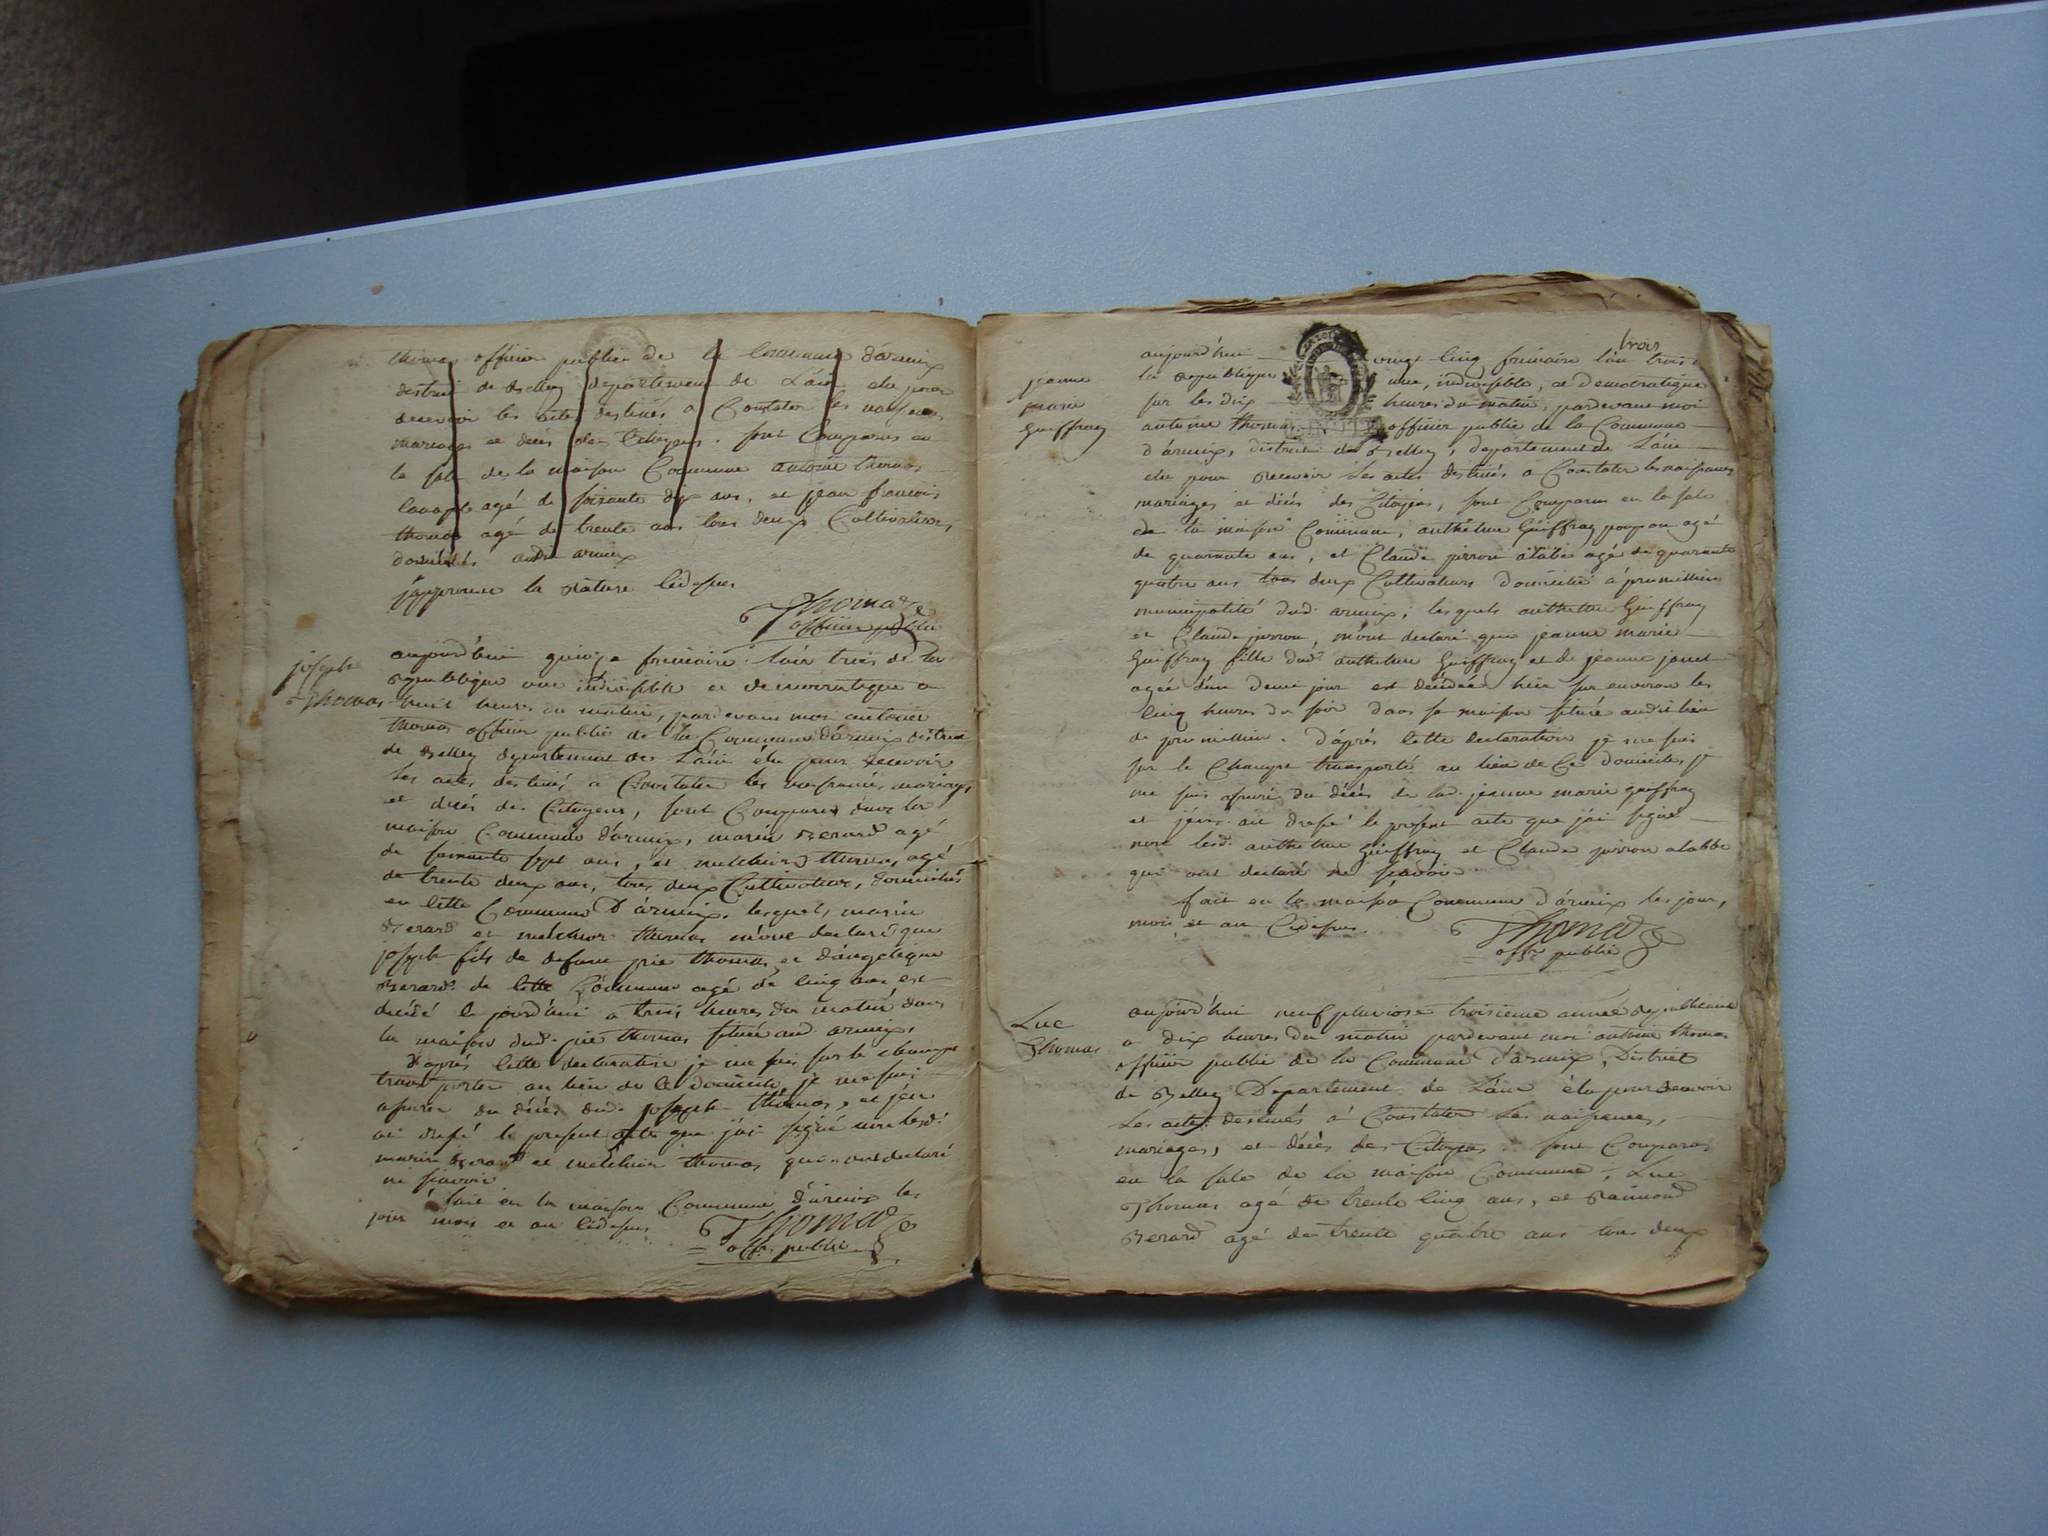 thomas officier public de la Commune d'armix
district de Belley departement de L'ain elu pour
recevoir les actes destinés a Constater les naissances
mariages et décés des Citoyens. sont Comparus en
la sale de la maison Commune antoine thomas
agé de soixante dix ans, et jean francois
thomas agé de trente ans tous deux Cultivateurs,
domiciliés audit armix
j'approuve la rature cidessus
Thomas
officier public
joseph
Thomas
aujourd'hui quinze frimaire l'an trois de la
republique une indivisible et democratique a
huit heures du matin, pardevant moi antoine
thomas officier public de la Commune d'armix district
de Belley departement de L'ain élu pour recevoir
les actes destinés a Constater les naissances, mariages,
et décés des Citoyens, sont Comparus dans la
maison Commune d'armix, marin Berard agé
de soixante sept ans, et melchior thomas, agé
de trente deux ans, tous deux Cultivateurs, domiciliés
en cette Commune D'armix, lesquels marin
Berard et melchior thomas m'ont declaré que
joseph fils de defunt thomas et d'angelique
Berard de cette Commune agé de cinq ans est
décédé le jourd'hui a trois heures du matin dans
la maison dud. thomas située aud. armix,
D'aprés cette declaration je me suis sur le champ
transporter au lieu de ce domicile, je me suis
assurer du décés dud. joseph thomas, et j'en
ai dressé le present acte que j'ai signé non lesd.
marin Berard et melchior thomas qui ont declaré
ne savoir
fait en la maison Commune d'armix les
jour mois et an cidessus
Thomas
offr. public
trois
jeanne
marie
Guiffray
aujourd'hui vingt Cinq frimaire l'an trois de
la republique une, indivisible, et democratique
sur les dix heures du matin, pardevant moi
antoine thomas officier public de la Commune
d'armix, district de Belley, departement de L'ain
elu pour recevoir les actes destinés a Constater les naissances
mariages et décés des Citoyens, sont Comparus en la sale
de la maison Commune, anthelme Guiffray poupon agé
de quarante ans, et Claude agé de quarante
quatre ans tous deux Cultivateurs domicilié a premillieu
municipalité dud. armix; lesquels anthelme Guiffray
et Claude, m'ont declaré que jeanne marie
Guiffray fille dud. anthelme Guiffray et de jeanne
agée d'un demi jour est décédée hier sur environ les
cinq heures du soir dans sa maison située audit lieu
de premillieu. D'aprés cette declaration je me suis
sur le Champ transporté au lieu de Ce domicile, je
me suis assuré du décés de lad. jeanne marie guiffray
et j'en ai dressé le present acte que j'ai signé
non lesd. anthelme Guiffray et Claude
qui ont declaré ne savoir.
fait en la maison Commune d'armix les jour,
mois et an Cidessus.
Thomas
offr. public
Luc
Thomas
aujourd'hui neuf pluviose troisieme année republicaine
a dix heures du matin pardevant moi antoine thomas
officier public de la Commune d'armix, District
de Belley Departement de L'ain élu pour recevoir
Les actes destinés a Constater Les naissances,
mariages, et décés des Citoyens. sont Comparus
en la sale de la maison Commune, Luc
Thomas agé de trente cinq ans, et Raimond
Berard agé de trente quatre ans tous deux